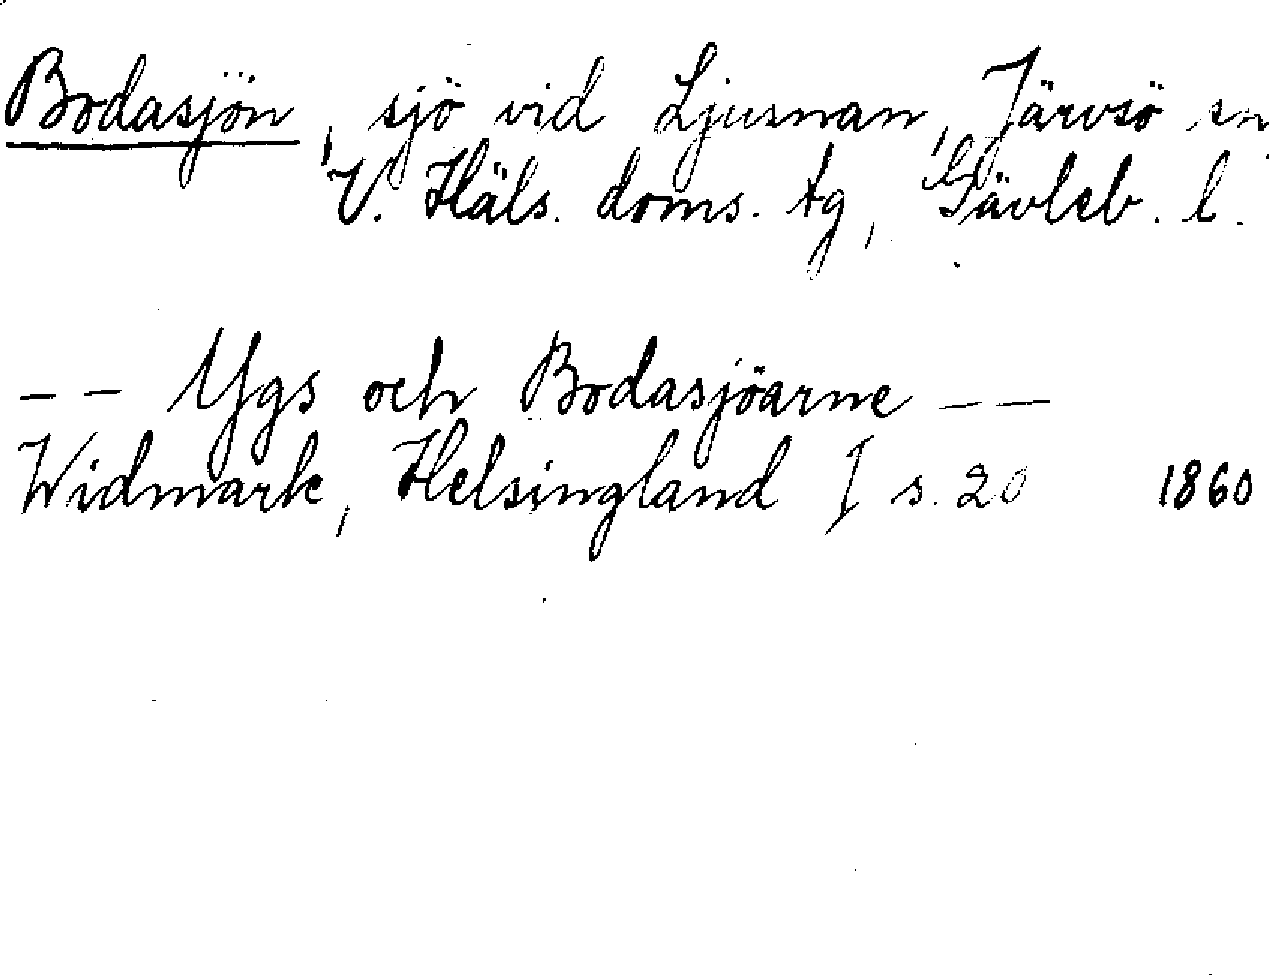 Bodasjön, sjö vid Ljusnan, Järvsö sn,
V. Häls. doms. tg, Gävleb. l.
-- Ygs och Bodasjöarne --
Widmark, Helsingland I s. 20 1860